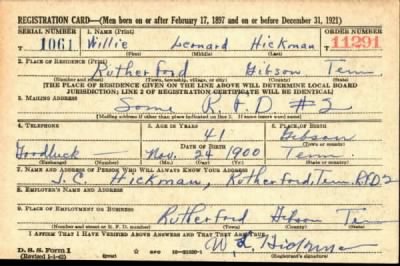 REGISTRATION CARD—(Men born on or after February 17, 1897 and on or before December 31, 1921)
SERIAL NUMBER 1. NAME (Print) ORDER NUMBER
T 1061 Willie Leonard Hickman 11291
(First) (Middle) (Last)
2. PLACE OF RESIDENCE (Print)
Rutherford Gibson Tenn
(Number and street) (Town, township, village, or city) (County) (State)
[THE PLACE OF RESIDENCE GIVEN ON THE LINE ABOVE WILL DETERMINE LOCAL BOARD
JURISDICTION; LINE 2 OF REGISTRATION CERTIFICATE WILL BE IDENTICAL]
3. MAILING ADDRESS
Same R F D #2
[Mailing address if other than place indicated on line 2. If same insert word same]
4. TELEPHONE 5. AGE IN YEARS 6. PLACE OF BIRTH
41 Gibson
DATE OF BIRTH (Town or county)
Goodluck Nov. 24 1900 Tenn.
(Exchange) (Number) (Mo.) (Day) (Yr.) (State or country)
7. NAME AND ADDRESS OF PERSON WHO WILL ALWAYS KNOW YOUR ADDRESS
Hickman, Rutherford, Tenn. R.F.D. 2
8. EMPLOYER'S NAME AND ADDRESS
9. PLACE OF EMPLOYMENT OR BUSINESS
Rutherford Gibson Tenn
(Number and street or R. F. D. number) (Town) (County) (State)
I AFFIRM THAT I HAVE VERIFIED ABOVE ANSWERS AND THAT THEY ARE TRUE.
D. S. S. Form 1
(Revised 1-1-42) (over) W. L. Hickman
(Registrant's signature)